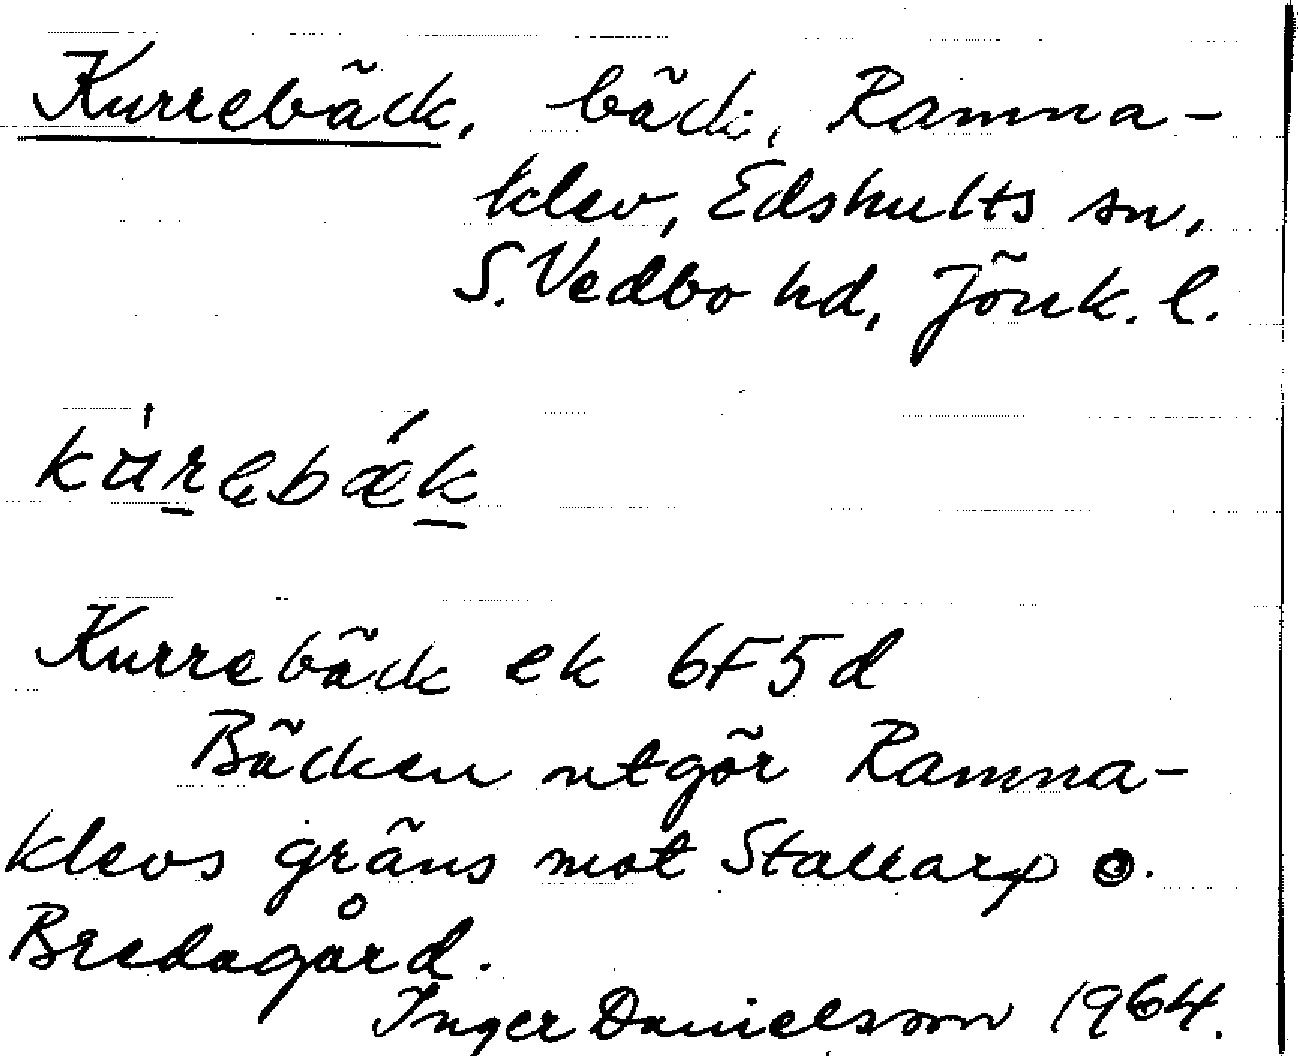 Kurrebäck, bäck, Ramna-
klev, Edshults sn,
S. Vedbo hd, Jönk. l.
kùrebǽk
Kurrebäck ek 6F5d
Bäcken utgör Ramna-
klevs gräns mot Stallarp o.
Bredagård.
Inger Danielsson 1964.